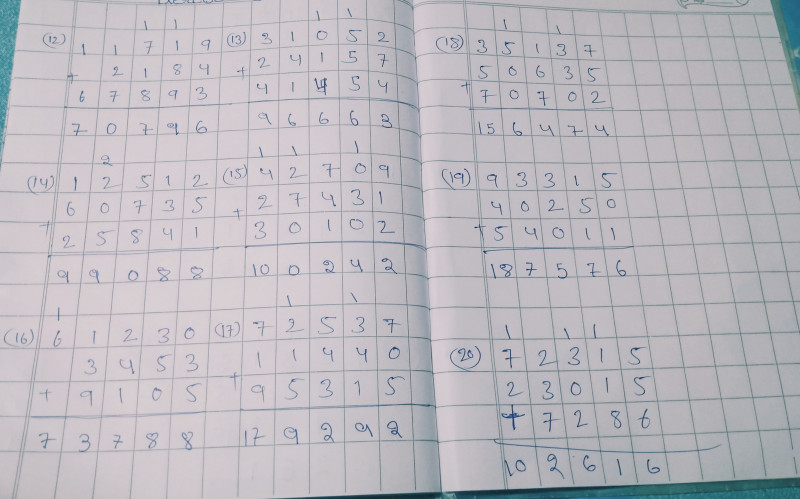 1 1
(12) 1 1 7 1 9
2 1 8 4
+ 6 7 8 9 3
7 0 7 9 6
1 1
(13) 3 1 0 5 2
+ 2 4 1 5 7
4 1 4 5 4
9 6 6 6 3
2
(14) 1 2 5 1 2
6 0 7 3 5
+ 2 5 8 4 1
9 9 0 8 8
1 1 1
(15) 4 2 7 0 9
+ 2 7 4 3 1
3 0 1 0 2
10 0 2 4 2
1
(16) 6 1 2 3 0
3 4 5 3
+ 9 1 0 5
7 3 7 8 8
1 1
(17) 7 2 5 3 7
1 1 4 4 0
+ 9 5 3 1 5
17 9 2 9 2
1 1
(18) 3 5 1 3 7
5 0 6 3 5
+ 7 0 7 0 2
15 6 4 7 4
(19) 9 3 3 1 5
4 0 2 5 0
+ 5 4 0 1 1
18 7 5 7 6
1 1 1
(20) 7 2 3 1 5
2 3 0 1 5
+ 7 2 8 6
10 2 6 1 6